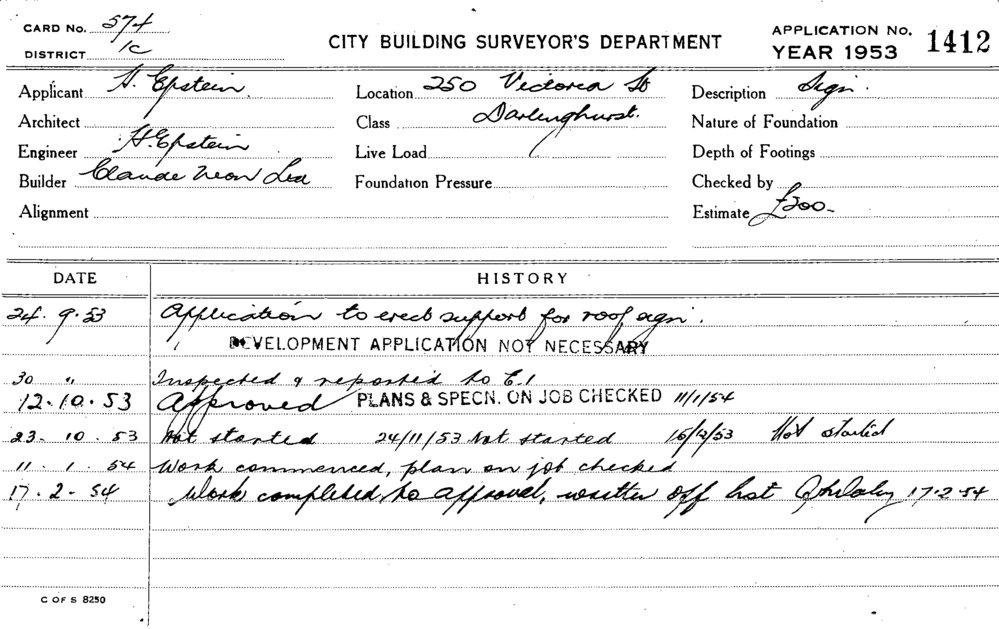 CARD No. 574
DISTRICT 1C
CITY BUILDING SURVEYOR'S DEPARTMENT
APPLICATION No. 1412
YEAR 1953
Applicant H. Epstein
Location 250 Victoria St
Description Sign.
Architect
Class Darlinghurst.
Nature of Foundation
Engineer H. Epstein
Live Load
Depth of Footings
Builder Claude Neon Ltd
Foundation Pressure
Checked by
Alignment
Estimate £200-
DATE HISTORY
24. 9. 53 Application to erect support for roof sign.
DEVELOPMENT APPLICATION NOT NECESSARY
30 " Inspected & reported to C.I
12.10.53 Approved PLANS & SPECN. ON JOB CHECKED 11/1/54
23. 10. 53 Not started 24/11/53 Not started 15/12/53 Not started
11. 1. 54 Work commenced, plan on job checked
17. 2. 54 Work completed to approval, written off list 17.2.54
C OF S 8250